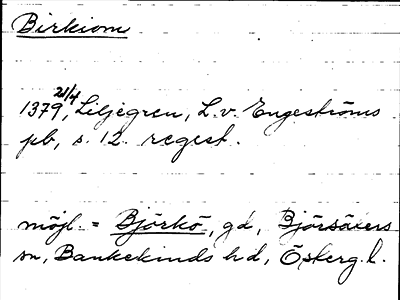 Birkiom
1379 21/4, Liljegren, L. v. Engeströms
pb, s. 12. regest.
möjl. = Björkö, gd, Björsäters
sn, Bankekinds hd, Österg. l.